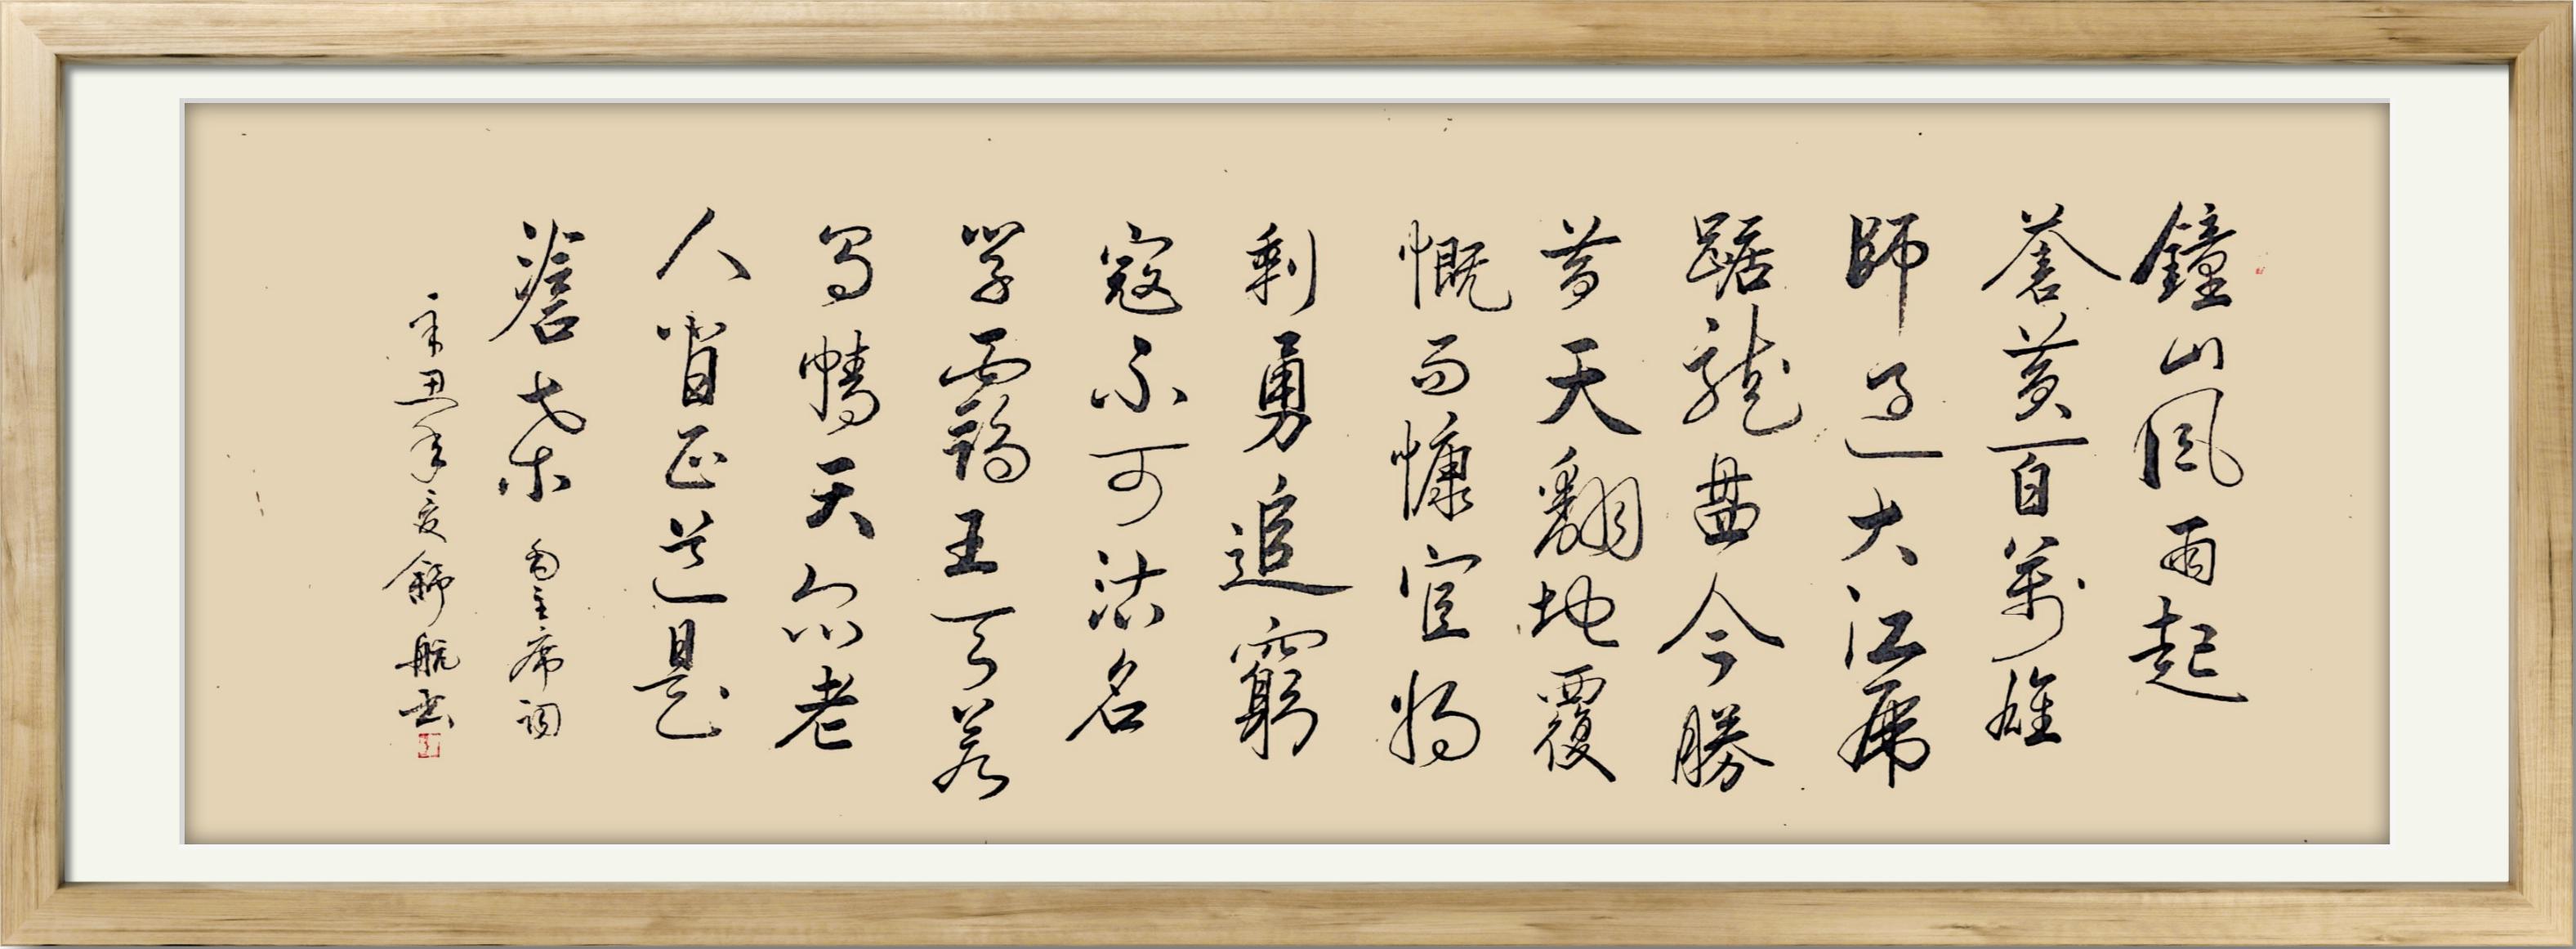 鐘山風雨起
蒼黃百萬雄
師過大江虎
踞龍盤今勝
昔天翻地覆
慨而慷宜将
剩勇追窮
寇不可沽名
學霸王天若
有情天亦老
人間正道是
滄桑 毛主席詞
辛丑年夏舒航书